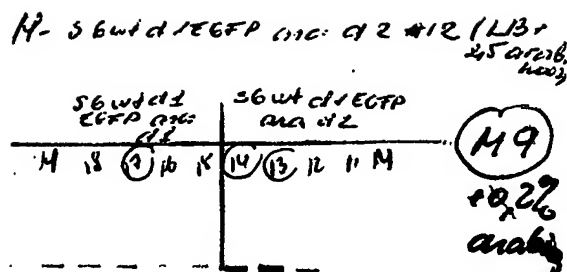 M- S6wt d1EGFP ara: d2 #12 (LB+
S6 wt d1 EGFP ara: d1
S6 wt d1 EGFP ara d2
M 18 17 16 15 14 13 12 11 M
M9
+0,2%
arabin